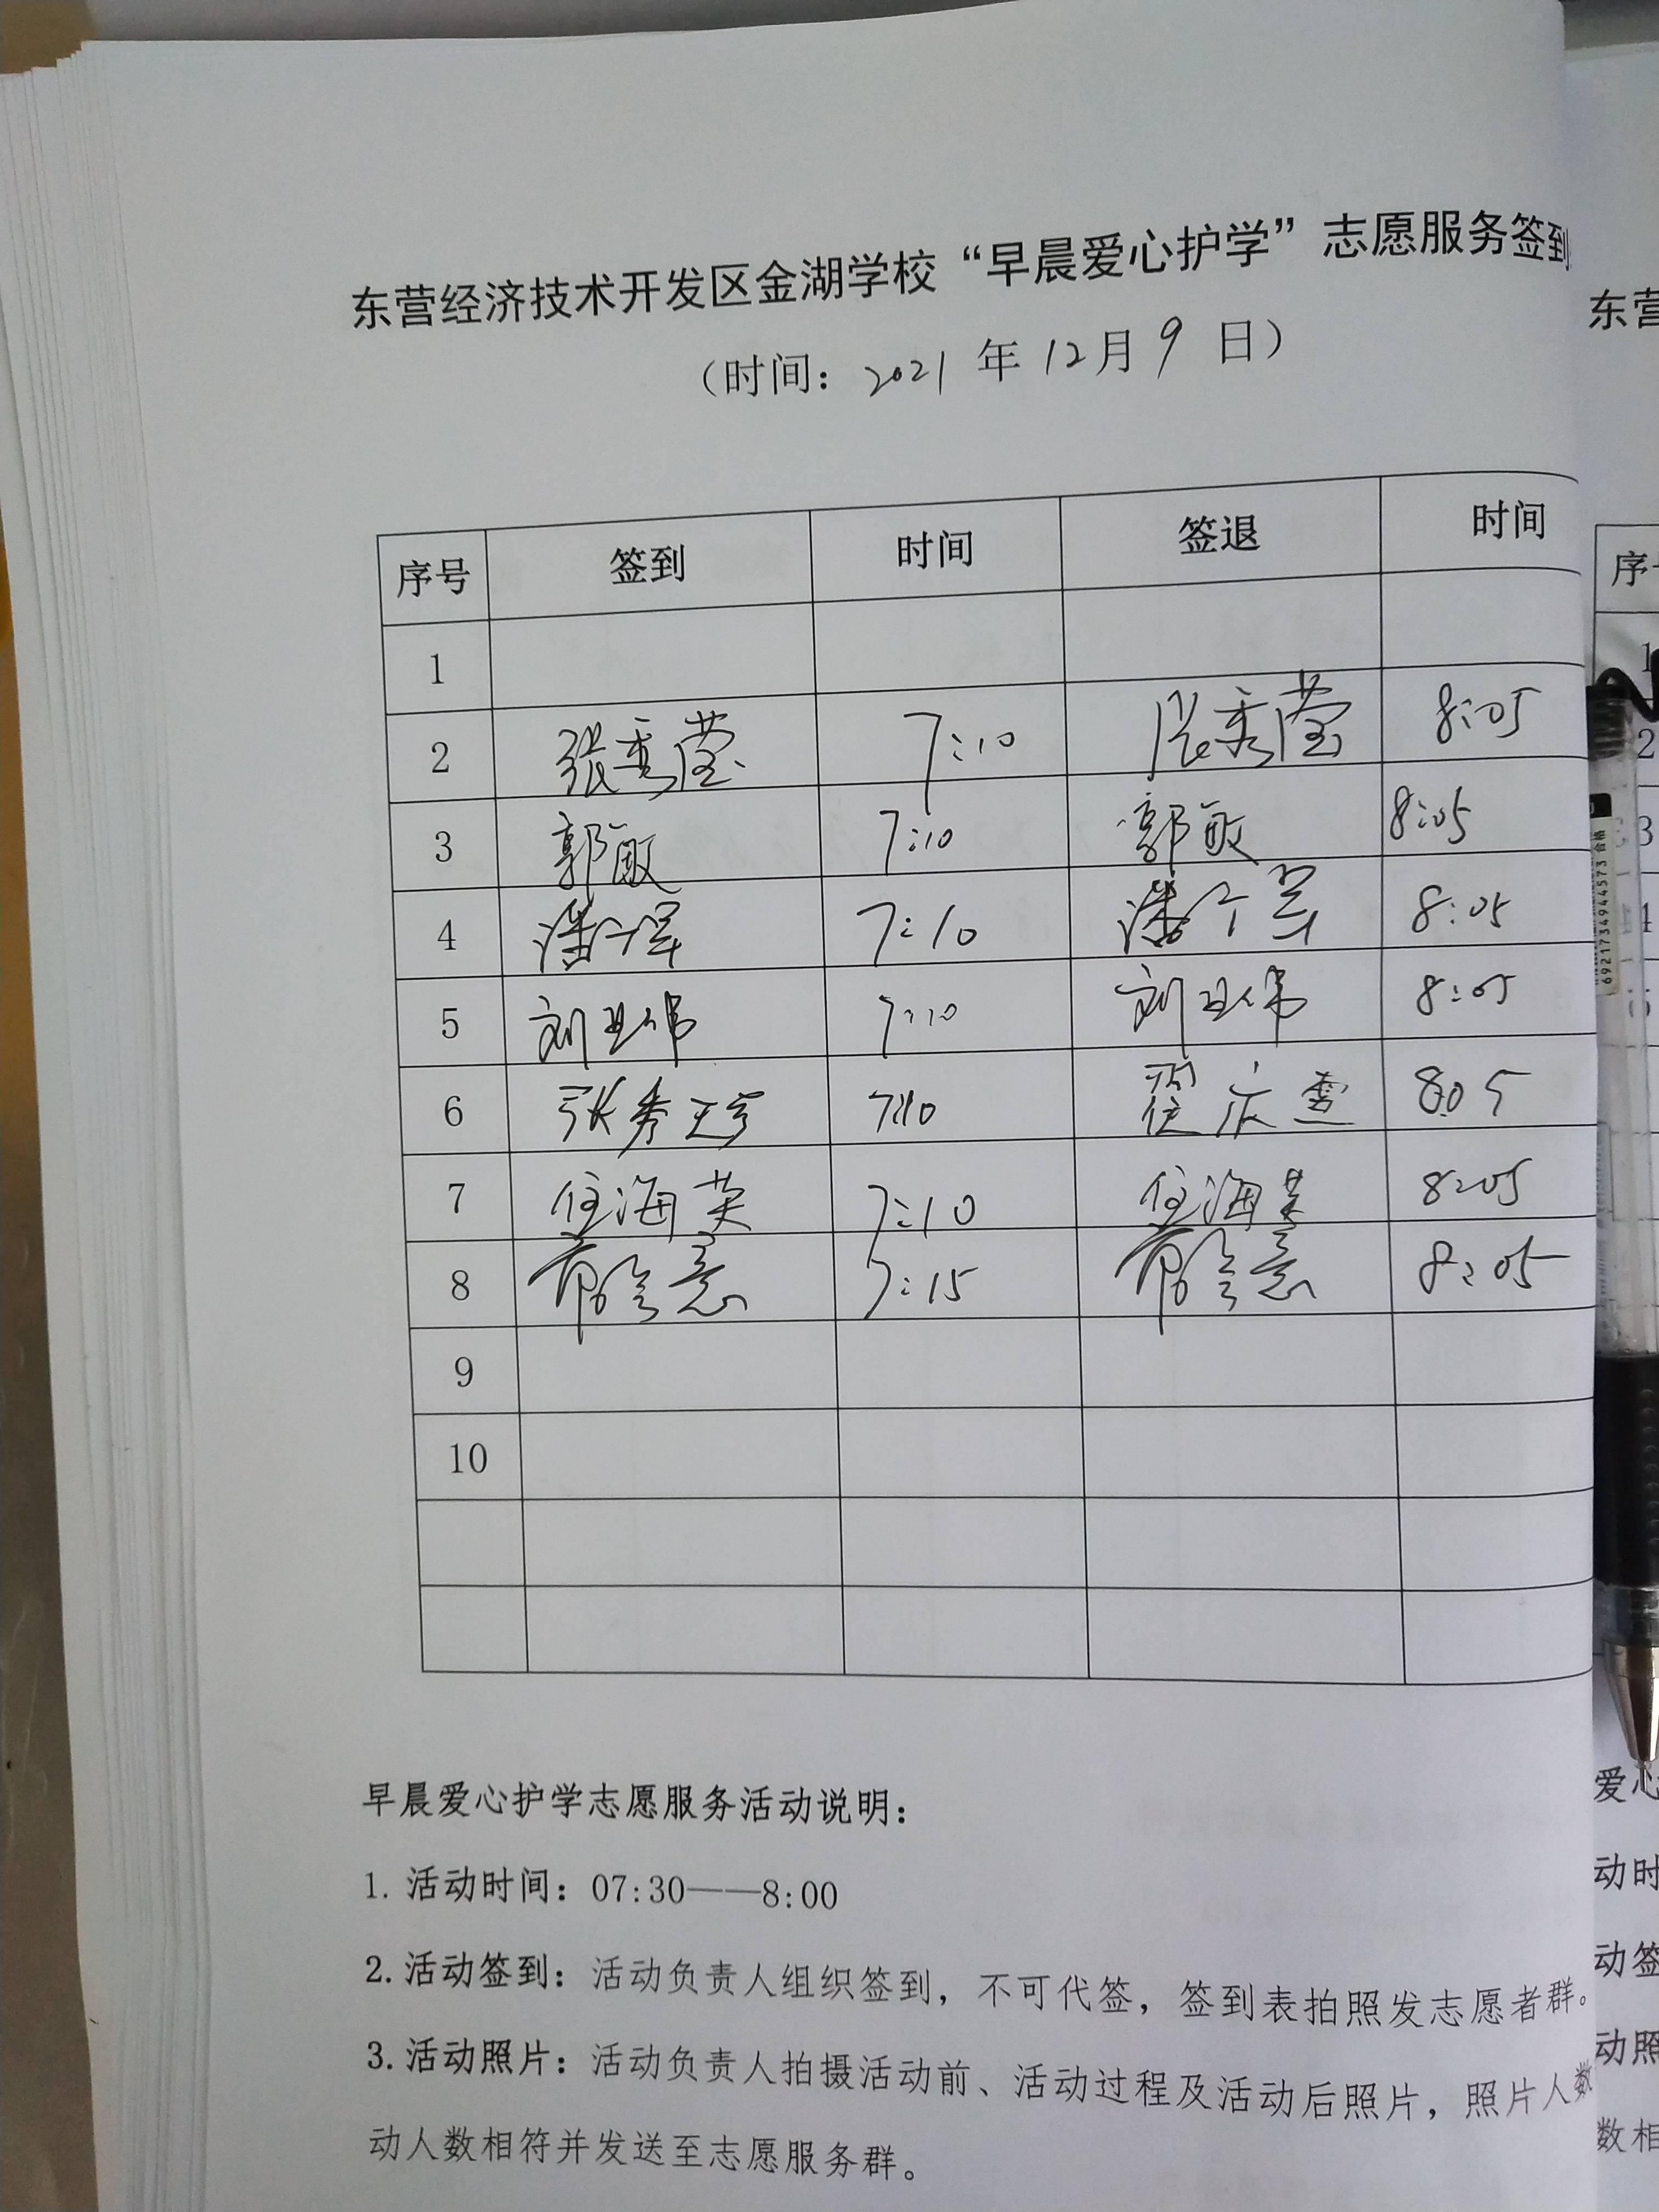 东营经济技术开发区金湖学校“早晨爱心护学”志愿服务签到
（时间：2021 年 12 月 9 日）
序号 签到 时间 签退 时间
1
2 张秀莹 7:10 张秀莹 8:05
3 郭敏 7:10 郭敏 8:05
4 7:10 8:05
5 7:10 8:05
6 7:10 8:05
7 任海英 7:10 任海英 8:05
8 7:15 8:05
9
10
早晨爱心护学志愿服务活动说明：
1. 活动时间：07:30——8:00
2. 活动签到：活动负责人组织签到，不可代签，签到表拍照发志愿者群。
3. 活动照片：活动负责人拍摄活动前、活动过程及活动后照片，照片人数
动人数相符并发送至志愿服务群。
东营
序
1
2
3
4
5
爱心
动时
动签
动照
数相
6921734944573 合格